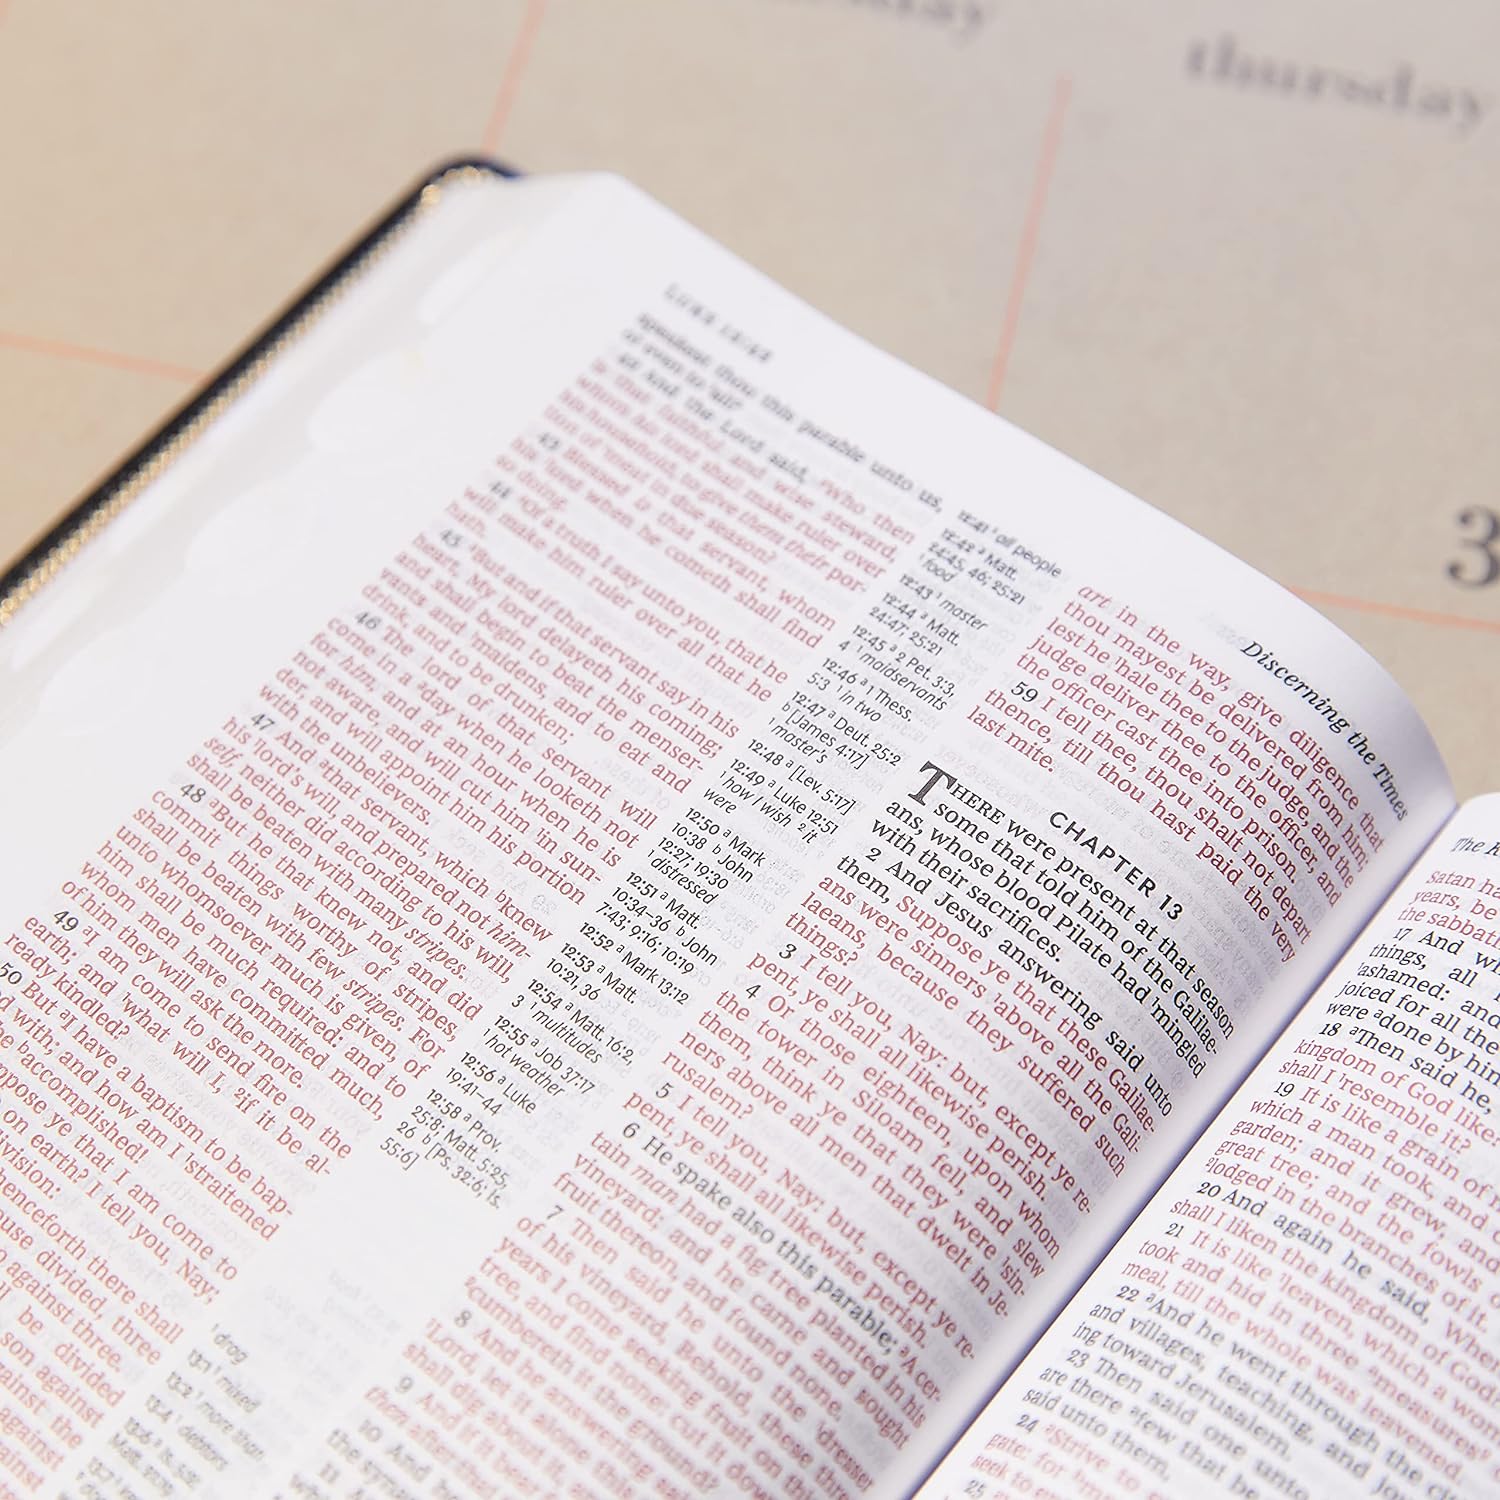 thursday
3
LUKE 12:42
Discerning the Times
speakest thou this parable unto us,
or even to all?
42 And the Lord said, Who then
is that faithful and wise steward,
whom his lord shall make ruler over
his household, to give them their por-
tion of meat in due season?
43 Blessed is that servant, whom
his lord when he cometh shall find
so doing.
44 Of a truth I say unto you, that he
will make him ruler over all that he
hath.
45 But and if that servant say in his
heart, My lord delayeth his coming;
and shall begin to beat the menser-
vants and maidens, and to eat and
drink, and to be drunken;
46 The lord of that servant will
come in a day when he looketh not
for him, and at an hour when he is
not aware, and will cut him in sun-
der, and will appoint him his portion
with the unbelievers.
47 And that servant, which knew
his lord's will, and prepared not him-
self, neither did according to his will,
shall be beaten with many stripes.
48 But he that knew not, and did
commit things worthy of stripes,
shall be beaten with few stripes. For
unto whomsoever much is given, of
him shall be much required: and to
whom men have committed much,
of him they will ask the more.
49 I am come to send fire on the
earth; and what will I, if it be al-
ready kindled?
50 But I have a baptism to be bap-
with; and how am I straitened
be accomplished!
ye that I am come to
on earth? I tell you, Nay;
division:
henceforth there shall
divided, three
against three.
be divided
son against
against the
12:41 1 all people
12:42 a Matt.
24:45, 46; 25:21
1 food
12:43 1 master
12:44 a Matt.
24:47; 25:21
12:45 a 2 Pet. 3:3,
4 1 maidservants
12:46 a 1 Thess.
5:3 1 in two
12:47 a Deut. 25:2
b [James 4:17]
1 master's
12:48 a [Lev. 5:17]
12:49 a Luke 12:51
1 how I wish 2 it
were
12:50 a Mark
10:38 b John
12:27; 19:30
1 distressed
12:51 a Matt.
10:34–36 b John
7:43; 9:16; 10:19
12:52 a Mark 13:12
12:53 a Matt.
10:21, 36
12:54 a Matt. 16:2,
3 1 multitudes
12:55 a Job 37:17
1 hot weather
12:56 a Luke
19:41–44
12:58 a Prov.
25:8; Matt. 5:25,
26 b [Ps. 32:6; Is.
55:6]
13:1 1 mixed
13:2 1 more than
13:4 1 debtors
art in the way, give diligence that
thou mayest be delivered from him;
lest he hale thee to the judge, and the
judge deliver thee to the officer, and
the officer cast thee into prison.
59 I tell thee, thou shalt not depart
thence, till thou hast paid the very
last mite.
CHAPTER 13
THERE were present at that season
some that told him of the Galilae-
ans, whose blood Pilate had mingled
with their sacrifices.
2 And Jesus answering said unto
them, Suppose ye that these Galilae-
ans were sinners above all the Gali-
laeans, because they suffered such
things?
3 I tell you, Nay: but, except ye re-
pent, ye shall all likewise perish.
4 Or those eighteen, upon whom
the tower in Siloam fell, and slew
them, think ye that they were sin-
ners above all men that dwelt in Je-
rusalem?
5 I tell you, Nay: but, except ye re-
pent, ye shall all likewise perish.
6 He spake also this parable; A cer-
tain man had a fig tree planted in his
vineyard; and he came and sought
fruit thereon, and found none.
7 Then said he unto the dresser
of his vineyard, Behold, these three
years I come seeking fruit on this fig
tree, and find none: cut it down;
cumbereth it the ground?
8 And he answering
let it alone
shall dig about it,
9 And if it bear
then after
10 And he
the synagogues
11
Satan
years, be
the sabbath
17 And
things, all
ashamed: and
joiced for all the
were done by him.
18 Then said he,
kingdom of God like?
shall I resemble it?
19 It is like a grain of
which a man took, and
garden; and it grew, and
great tree; and the fowls
lodged in the branches of it.
20 And again he said,
shall I liken the kingdom of God?
21 It is like leaven, which a
took and hid in three measures
meal, till the whole was leavened.
22 And he went through the
and villages, teaching, and
ing toward Jerusalem.
23 Then said one unto
are there few that be
said unto them,
24 Strive to
gate: for
seek to
25